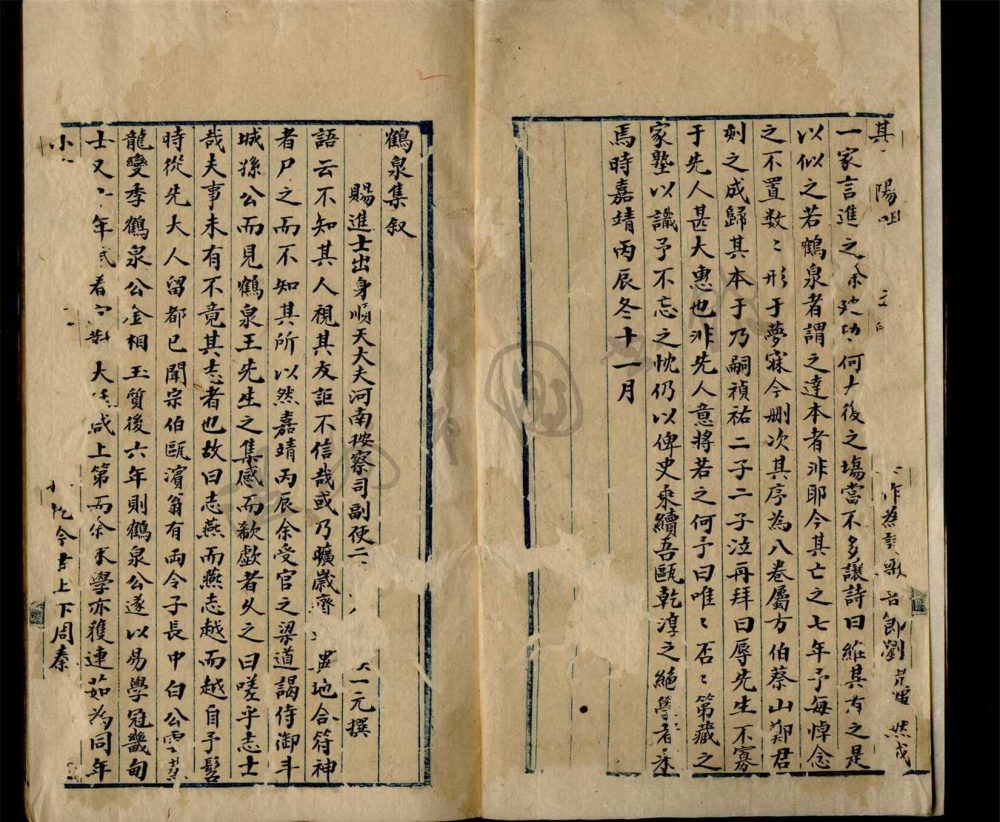 其 陽
一家言進之 何 後之塲當不多讓詩曰維其有之是
以似之若鶴泉者謂之達本者非耶今其亡之七年予每悼念
之不置数〻形于夢寐今刪次其序為八卷屬方伯蔡山鄭君
刻之成歸其本于乃嗣禎祐二子二子泣再拜曰辱先生不寡
于先人甚大惠也非先人意將若之何予曰唯〻否〻第藏之
家塾以識予不忘之忱仍以俾史乘續吾甌乾淳之絕學者采
焉時嘉靖丙辰冬十一月
鶴泉集叙
賜進士出身順天大夫河南按察司副使 一元撰
語云不知其人視其友詎不信哉或乃曠歲齊 異地合符神
者尸之而不知其所以然嘉靖丙辰余受官之梁道謁侍御斗
城孫公而見鶴泉王先生之集感而歔欷者久之曰嗟乎志士
哉夫事未有不竟其志者也故曰志燕而燕志越而越自予髫
時從先大人留都已聞宗伯甌濱翁有両令子長中白公雲蒸
龍變季鶴泉公金相玉質後六年則鶴泉公遂以易學冠畿甸
士又 年 大 咸上第而余末學亦獲連茹為同年
小 今古上下周秦